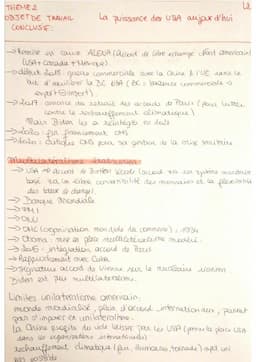 THEME 2
OBJET DE TRAVAIL
CONCLUSIF:
La puissance des USA aujourd'hui
→ Remise en cause ALENA (Accord de libre échange nord américain)
(USA + Canada + Mexique)
→ début 2018: guerre commerciale avec la Chine & l'UE dans le
but d'équilibrer la BC USA (BC: balance commerciale =
export ⊖ import)
→ 2017: annonce du retrait des accords de Paris (pour lutter
contre le réchauffement climatique)
Mais Biden les a réintégrés en 2021
→ 2020: fin financement OMS
→ 2020: critique OMS pour sa gestion de la crise sanitaire
Multilatéralisme américain
→ USA → accord de Bretton Woods (accord sur un système monétaire
basé sur la libre convertibilité des monnaies et la
des taux de change).
→ Banque Mondiale
→ FMI
→ ONU
→ OMC (organisation mondiale du commerce): 1994
→ Obama: met en place multilatéralisme modéré.
→ 2015: intégration accord de Paris
→ Rapprochement avec Cuba
→ Signature accord de Vienne sur le nucléaire iranien
Biden est pour multilatéralisme.
Limites unilatéralisme américain.
monde mondialisé, plein d'accord internationaux, peuvent
pas s'imposer en unilatéralisme.
la Chine profite du vide laissé par les USA (prend la place USA
dans les organisations internationales)
réchauffement climatique (feu, tornade) agit
en